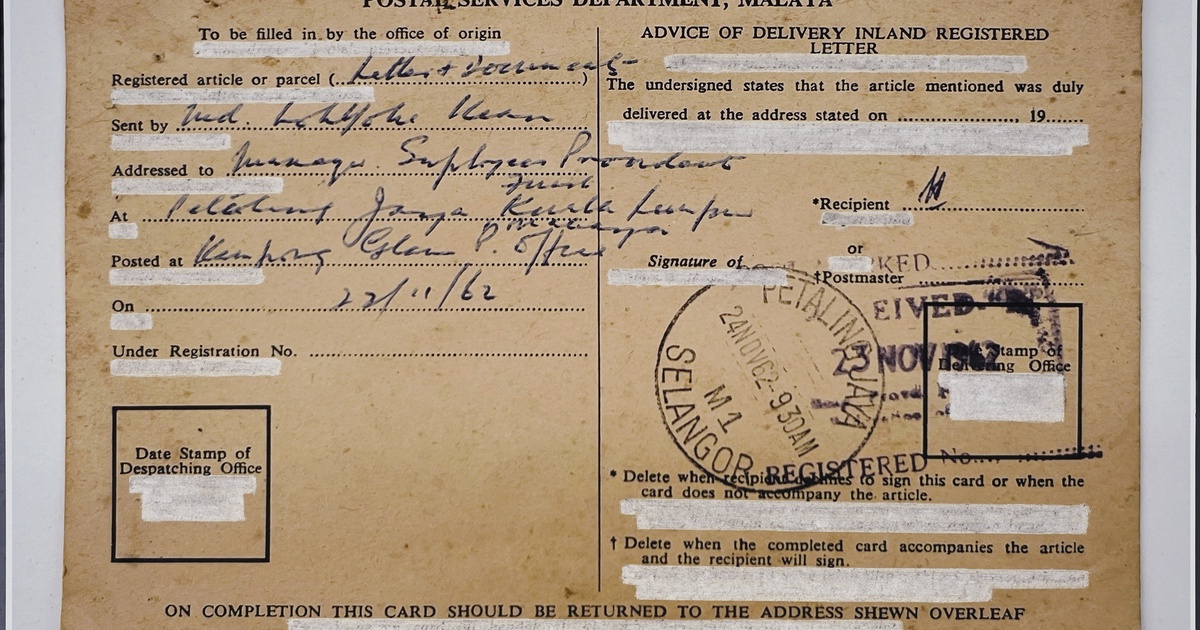 POSTAL SERVICES DEPARTMENT, MALAYA
To be filled in by the office of origin
Registered article or parcel (Letter + Documents)
Sent by Md. Kean
Addressed to Manager Employees Provident
Fund
At Petaling Jaya Kuala Lumpur
Malaya
Posted at Kampong Glam P. Office
On 22/11/62
Under Registration No.
Date Stamp of
Despatching Office
ADVICE OF DELIVERY INLAND REGISTERED
LETTER
The undersigned states that the article mentioned was duly
delivered at the address stated on ...................., 19......
*Recipient
or
Signature of
†Postmaster
KED
EIVED
23 NOV 1962
Date Stamp of
Delivering Office
REGISTERED No.
PETALING JAYA
24NOV62-930AM
M1
SELANGOR
* Delete when recipient declines to sign this card or when the
card does not accompany the article.
† Delete when the completed card accompanies the article
and the recipient will sign.
ON COMPLETION THIS CARD SHOULD BE RETURNED TO THE ADDRESS SHEWN OVERLEAF